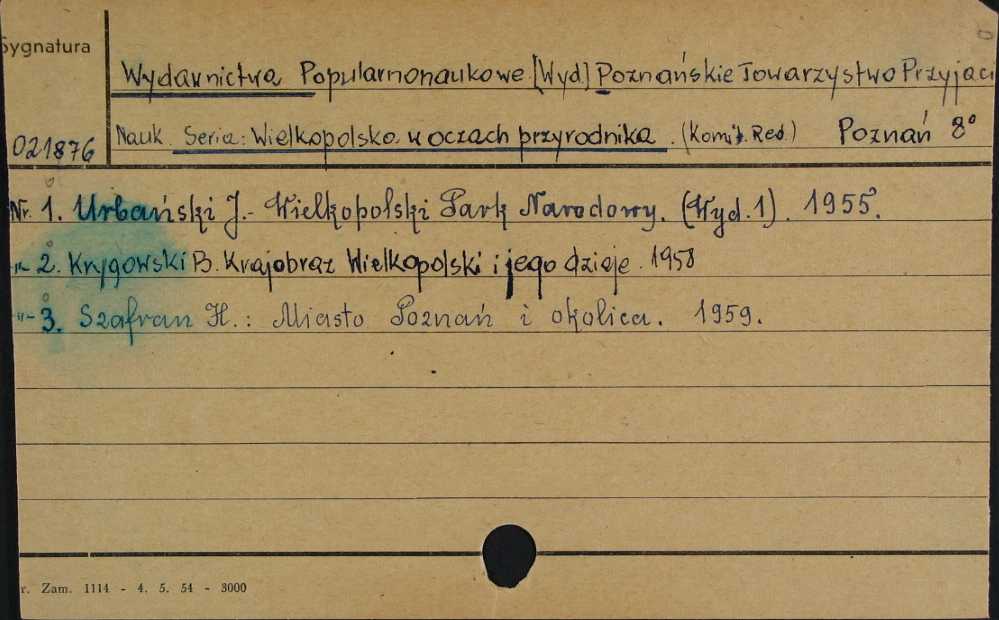 Sygnatura
Wydawnictwa Popularnonaukowe [Wyd] Poznańskie Towarzystwo Przyjaci
021876 Nauk. Seria: Wielkopolska w oczach przyrodnika. (Komit. Red.) Poznań 8°
Nr. 1. Urbański J.- Wielkopolski Park Narodowy. (Wyd. 1). 1955.
"- 2. Krygowski B. Krajobraz Wielkopolski i jego dzieje. 1958
"- 3. Szafran H.: Miasto Poznań i okolica. 1959.
r. Zam. 1114 - 4. 5. 54 - 3000